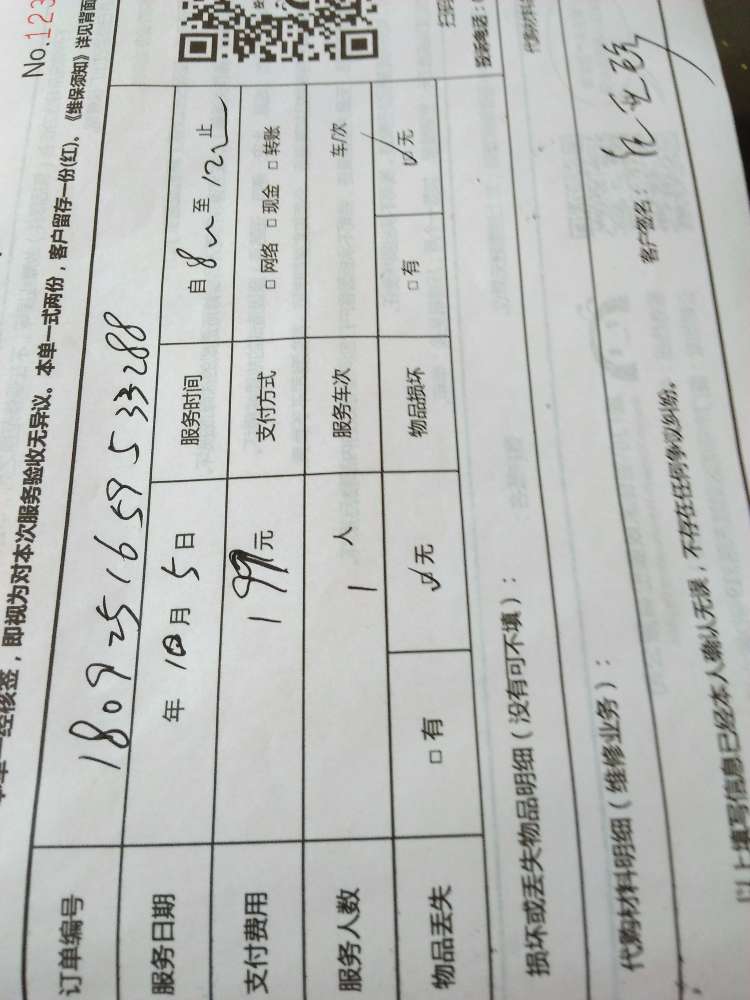 No.123
经核签，即视为对本次服务验收无异议。本单一式两份，客户留存一份(红)、《维保须知》详见背面
订单编号 180925165953​3288
服务日期 年 10 月 5 日 服务时间 自 8 至 12 止
支付费用 199 元 支付方式 □ 网络 □ 现金 □ 转账
服务人数 1 人 服务车次 车/次
物品丢失 □ 有 ☑ 无 物品损坏 □ 有 ☑ 无
损坏或丢失物品明细（没有可不填）：
代购材料明细（维修业务）：
客户签名：
以上填写信息已经本人确认无误，不存在任何争议纠纷。